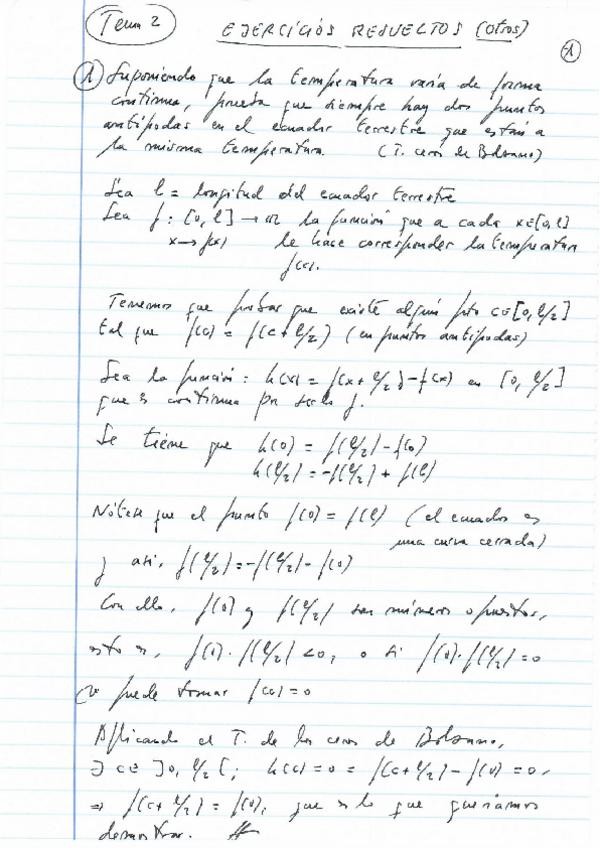 Tema 2
EJERCICIOS RESUELTOS (otros)
1
1) Suponiendo que la temperatura varía de forma
continua, prueba que siempre hay dos puntos
antípodas en el ecuador terrestre que están a
la misma temperatura. (T. ceros de Bolzano)
Sea l = longitud del ecuador terrestre
Sea f: [0, l] → IR la función que a cada x∈[0,l]
x → f(x) le hace corresponder la temperatura
f(x).
Tenemos que probar que existe algún pto c∈[0, l/2]
tal que f(c) = f(c + l/2) (en puntos antípodas)
Sea la función: h(x) = f(x + l/2) - f(x) en [0, l/2]
que es continua por serlo f.
Se tiene que h(0) = f(l/2) - f(0)
h(l/2) = -f(l/2) + f(l)
Nótese que el punto f(0) = f(l) (el ecuador es
una curva cerrada)
y así, f(l/2) = -f(l/2) - f(0)
Con ello, f(0) y f(l/2) son números opuestos,
esto es, f(0) · f(l/2) < 0, o si f(0) · f(l/2) = 0
se puede tomar f(c) = 0
Aplicando el T. de los ceros de Bolzano,
∃ c ∈ ]0, l/2[; h(c) = 0 = f(c + l/2) - f(c) = 0,
⇒ f(c + l/2) = f(c), que es lo que queríamos
demostrar. #